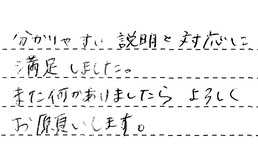 分かりやすい説明と対応に
満足しました。
また何かありましたら よろしく
お願いします。